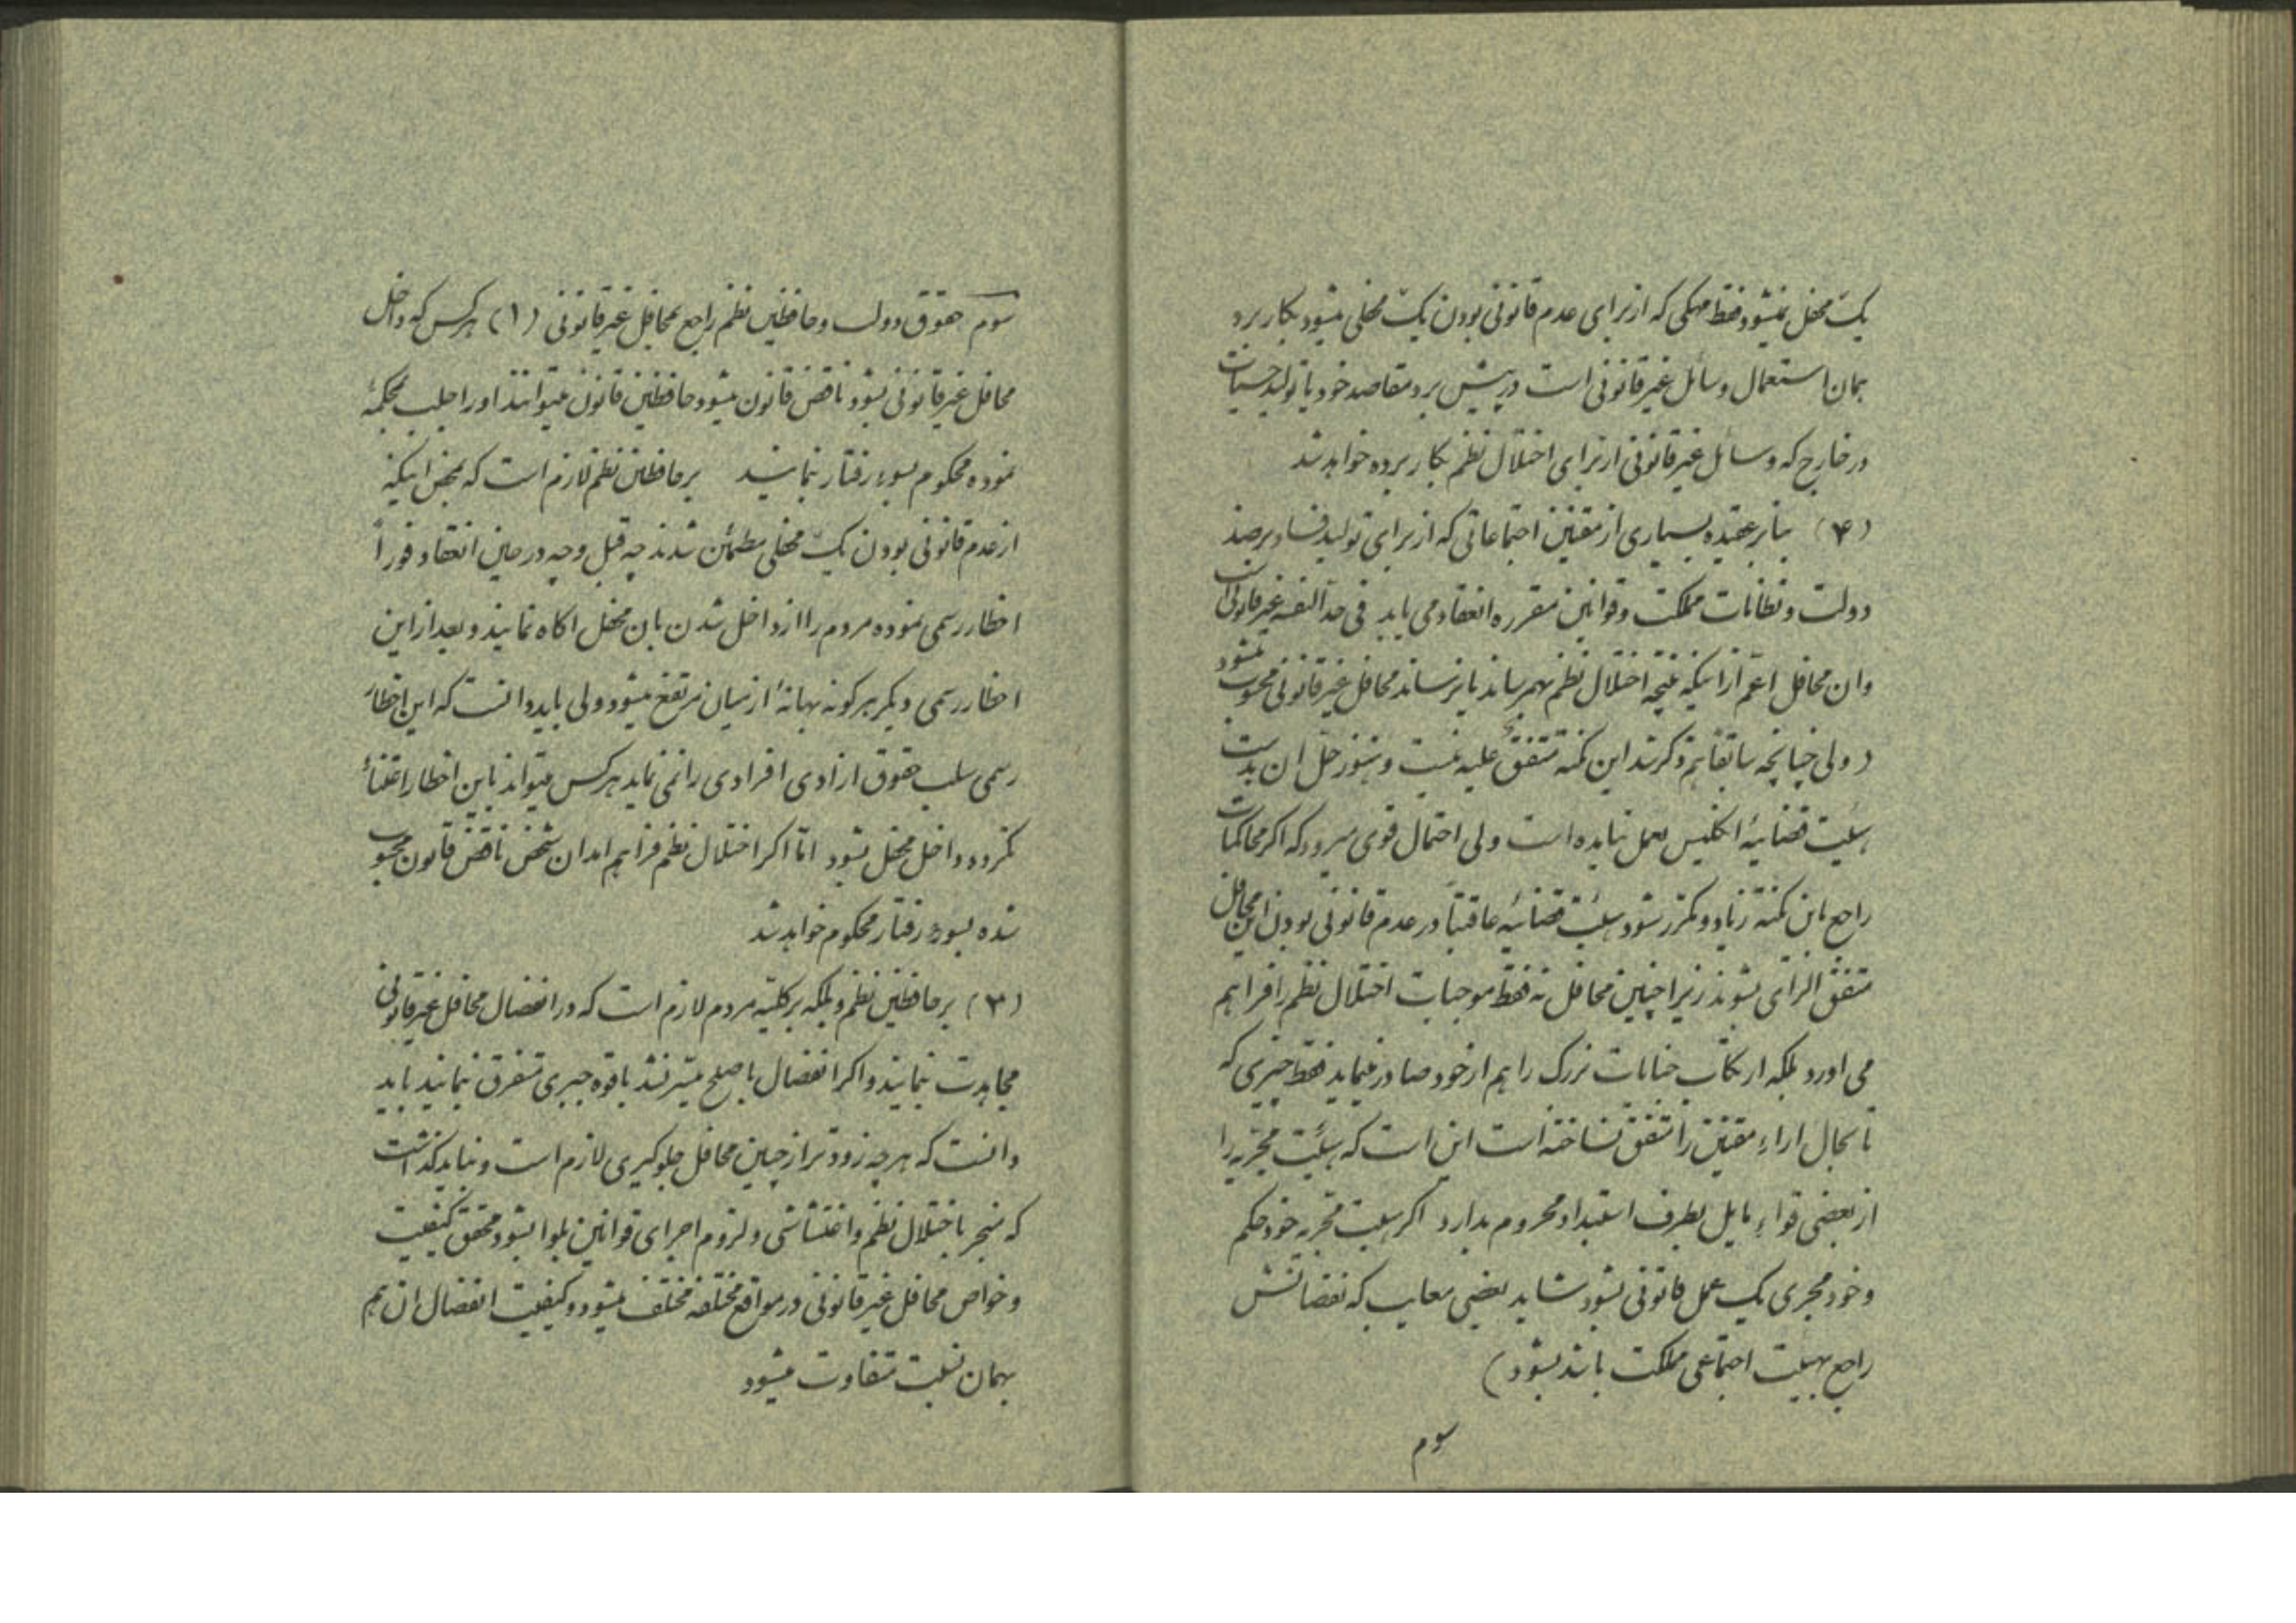 یک محفل نمیشود فقط محکی که از برای عدم قانونی بودن یک محفلی میشود بکار برد
همان استعمال وسائل غیرقانونی است در پیش برد مقاصد خود یا تولید حسیات
در خارج که وسائل غیرقانونی از برای اختلال نظم بکار برده خواهد شد
(۴) بنابر عقیده بسیاری از مقننین اجتماعاتی که از برای تولید فساد بر ضد
دولت و نظامات مملکت و قوانین مقرره انعقاد می یابد فی حد النفسه غیرقانونی است
وان محافل اعم از اینکه نتیجه اختلال نظم بهم رساند یا نرساند محافل غیرقانونی محسوب میشود
(ولی چنانچه سابقا هم ذکر شد این نکته متفق علیه نیست و هنوز حل ان بدست
هیئت قضائیه انگلیس بعمل نیامده است ولی احتمال قوی میرود که اگر محاکمات
راجع باین نکته زیاد و مکرر شود هیئت قضائیه عاقبتاً در عدم قانونی بودن این محافل
متفق الرای بشوند زیرا چنین محافل نه فقط موجبات اختلال نظم را فراهم
می اورد بلکه ارتکاب جنایات بزرگ را هم از خود صادر مینماید فقط چیزی که
تا بحال اراء مقننین را متفق نساخته است این است که هیئت مجریه را
از بعضی قواء مایل بطرف استبداد محروم بدارد اگر هیئت مجریه خود حکم
و خود مجری یک عمل قانونی بشود شاید بعضی معایب که نقصانش
راجع بهیئت اجتماعی مملکت باشد بشود)
سوم
سوم حقوق دولت و حافظین نظم راجع بمحافل غیرقانونی (۱) هرکس که داخل
محافل غیرقانونی بشود ناقض قانون میشود حافظین قانون میتوانند او را جلب بمحکمه
نموده محکوم بسوء رفتار نمایند بر حافظین نظم لازم است که بمحض اینکه
از عدم قانونی بودن یک محفلی مطمئن شدند چه قبل و چه در حین انعقاد فوراً
اخطار رسمی نموده مردم را از داخل شدن بان محفل اگاه نمایند و بعد از این
اخطار رسمی دیگر هرگونه بهانه از میان مرتفع میشود ولی باید دانست که این اخطار
رسمی سلب حقوق ازادی افرادی را نمی نماید هرکس میتواند باین اخطار اعتناء
نکرده و داخل محفل بشود اما اگر اختلال نظم فراهم امد ان شخص ناقض قانون محسوب
شده بسوء رفتار محکوم خواهد شد
(۲) بر حافظین نظم و بلکه بر کلیه مردم لازم است که در انفصال محافل غیرقانونی
مجاهدت نمایند و اگر انفصال با صلح میسر نشد با قوه جبری متفرق نمایند باید
دانست که هر چه زودتر از چنین محافل جلوگیری لازم است و نباید گذاشت
که منجر باختلال نظم و اغتشاشی و لزوم اجرای قوانین بلوا بشود محقق کیفیت
و خواص محافل غیرقانونی در مواقع مختلفه مختلف میشود و کیفیت انفصال ان هم
بهمان نسبت متفاوت میشود